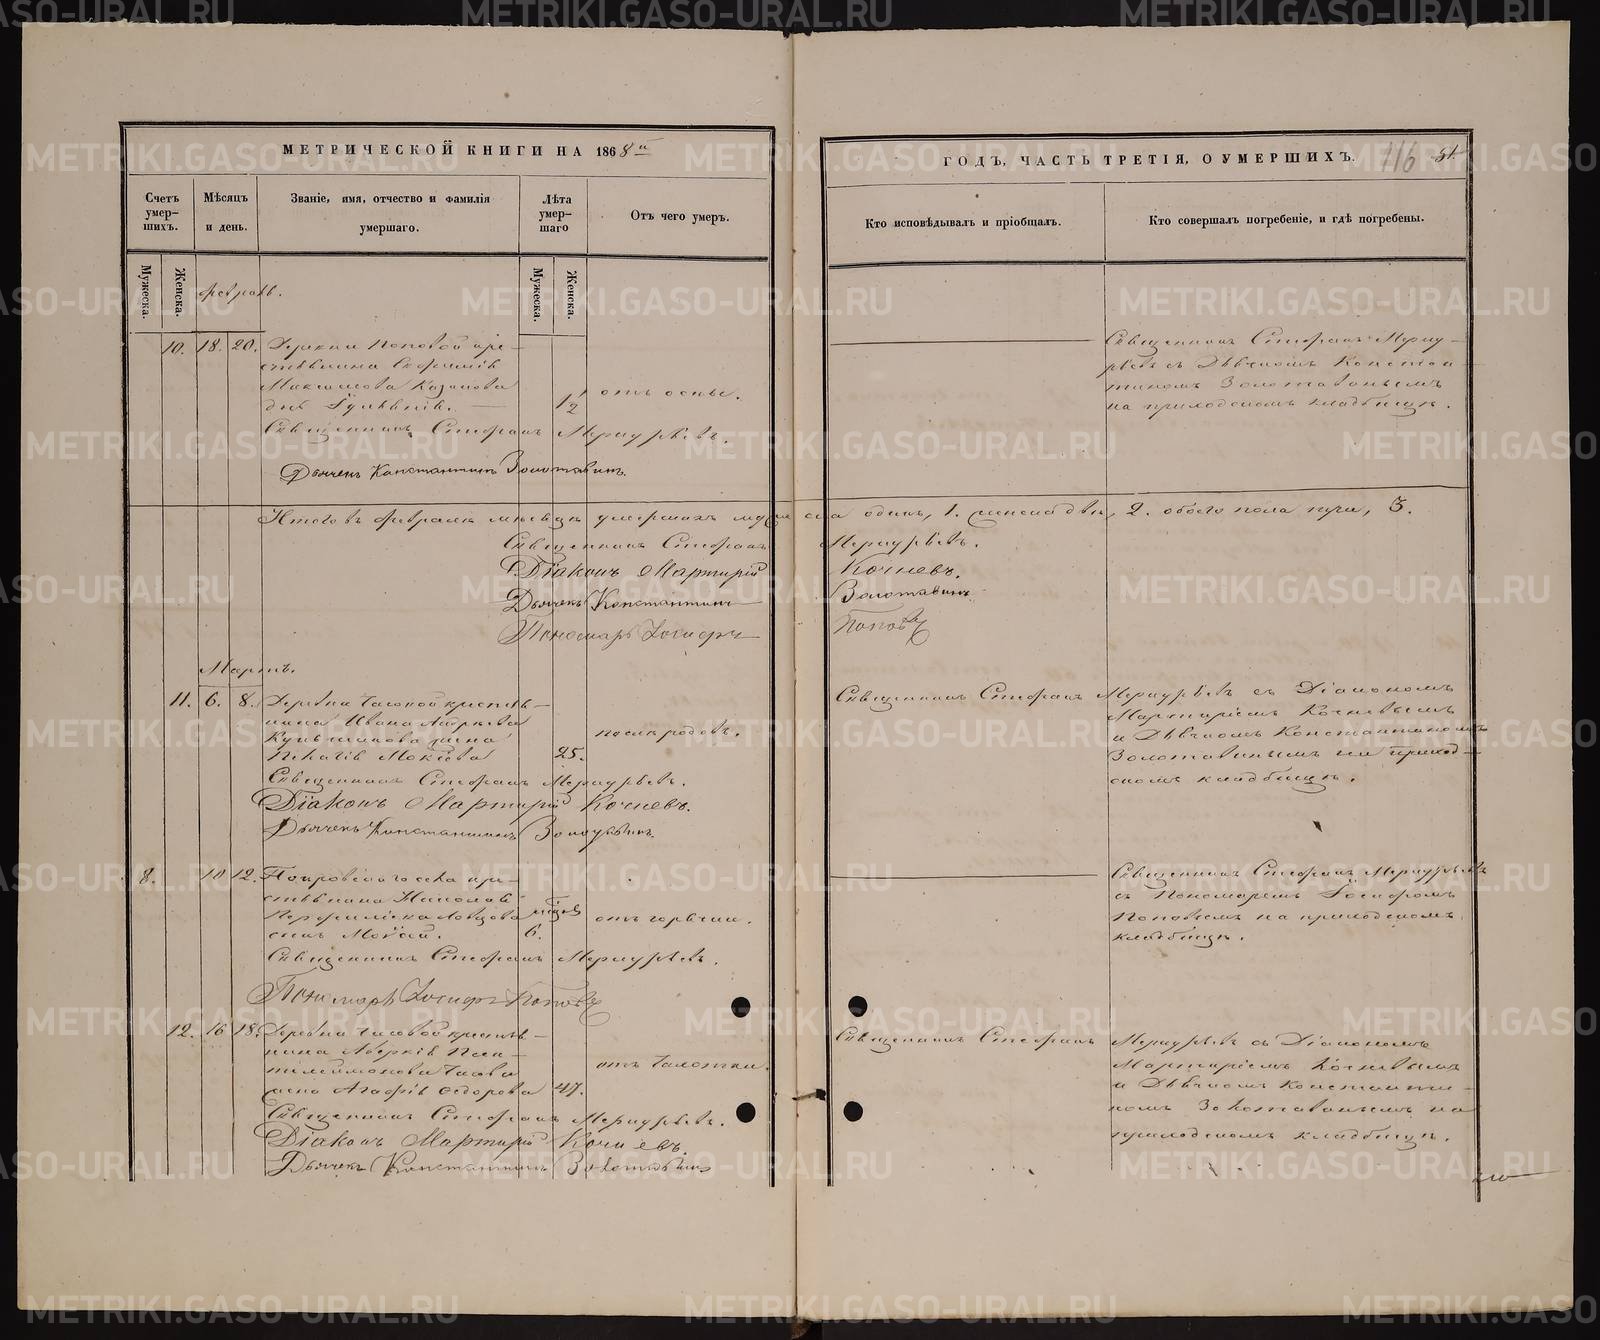 МЕТРИЧЕСКОЙ КНИГИ НА 1868й
Счетъ умер-шихъ.
Мѣсяцъ и день.
Званіе, имя, отчество и фамилія умершаго.
Лѣта умер-шаго
Отъ чего умеръ.
Мужеска.
Женска.
Мужеска.
Женска.
ГОДЪ, ЧАСТЬ ТРЕТІЯ, О УМЕРШИХЪ.
116
Кто исповѣдывалъ и пріобщалъ.
Кто совершалъ погребеніе, и гдѣ погребены.
Февраль.
10. 18. 20. Деревни Поповой кре-
стьянина
Максимова Казанцова
дочь
1/2
отъ оспы.
Священникъ Стефанъ Меркурьевъ.
Дьячекъ Константинъ Золотавинъ.
Священникъ Стефанъ Мерку-
рьевъ съ Дьячкомъ Констан-
тиномъ Золотавинымъ
на приходскомъ кладбищѣ.
Итого въ Февралѣ мѣсяцѣ умершихъ мужеска одинъ, 1. женска двѣ, 2. обоего пола три, 3.
Священникъ Стефанъ Меркурьевъ.
Діаконъ Мартирій Кочневъ.
Дьячекъ Константинъ Золотавинъ
Пономарь Іосифъ Поповъ
Мартъ.
11. 6. 8. Деревни Часовой крестья-
нина Ивана
жена
Пелагія Мокіева
25.
послѣ родовъ.
Священникъ Стефанъ Меркурьевъ.
Діаконъ Мартирій Кочневъ.
Дьячекъ Константинъ Золотавинъ.
Священникъ Стефанъ Меркурьевъ съ Діакономъ
Мартиріемъ Кочневымъ
и Дьячкомъ Константиномъ
Золотавинымъ на приход-
скомъ кладбищѣ.
8. 10 12. Покровскаго села кре-
стьянина Николая
сынъ Моисей.
мѣсяцевъ
6.
отъ горячки.
Священникъ Стефанъ Меркурьевъ.
Пономарь Іосифъ Поповъ
Священникъ Стефанъ Меркурьевъ
съ Пономаремъ Іосифомъ
Поповымъ на приходскомъ
кладбищѣ.
12. 16 18. Деревни Часовой крестья-
нина Аверкія Пан-
телеимонова
жена Агафія Ѳедорова
47.
отъ чахотки.
Священникъ Стефанъ Меркурьевъ.
Діаконъ Мартирій Кочневъ.
Дьячекъ Константинъ Золотавинъ
Священникъ Стефанъ Меркурьевъ съ Діакономъ
Мартиріемъ Кочневымъ
и Дьячкомъ Константи-
номъ Золотавинымъ на
приходскомъ кладбищѣ.
METRIKI.GASO-URAL.RU